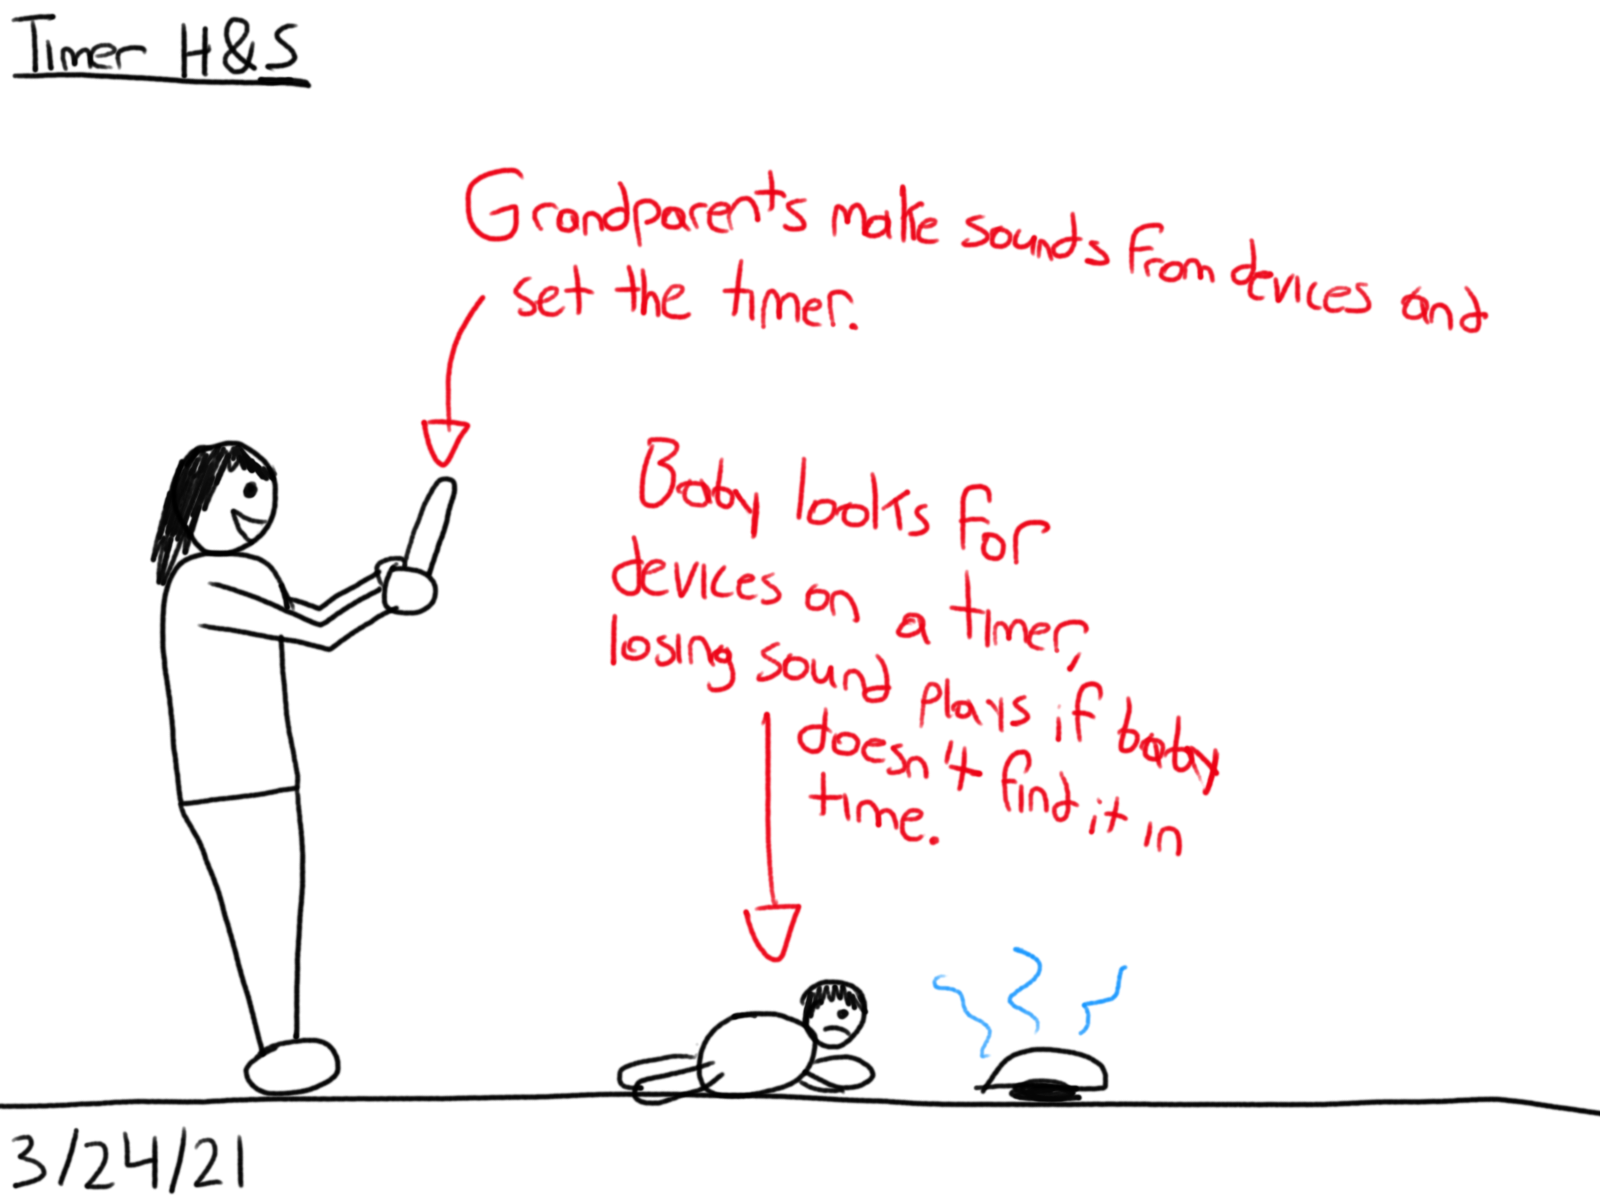 Timer H&S
Grandparents make sounds from devices and
set the timer.
Baby looks for
devices on a timer,
losing sound plays if baby
doesn't find it in
time.
3/24/21